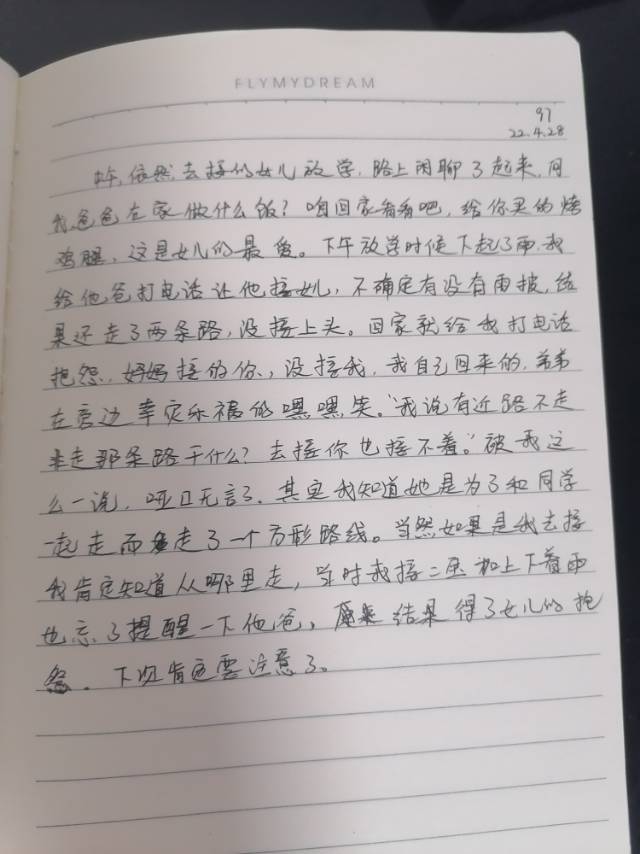 FLYMYDREAM
97
22.4.28
中午,依然去接的女儿放学,路上闲聊了起来,问
我,爸爸在家做什么饭?咱回家看看吧,给你买的烤
鸡腿,这是女儿的最爱。下午放学时候下起了雨,我
给他爸打电话让他接女儿,不确定有没有雨披,结
果还走了两条路,没接上头。回家就给我打电话
抱怨,妈妈接的你,没接我,我自己回来的,弟弟
在旁边幸灾乐祸的嘿嘿笑。“我说有近路不走
走那条路干什么?去接你也接不着。”被我这
么一说,哑口无言了,其实我知道她是为了和同学
一起走而走了一个方形路线。当然如果是我去接
我肯定知道从哪里走,当时我接二宝加上下着雨
也忘了提醒一下他爸,结果得了女儿的抱
怨.下次肯定要注意了。